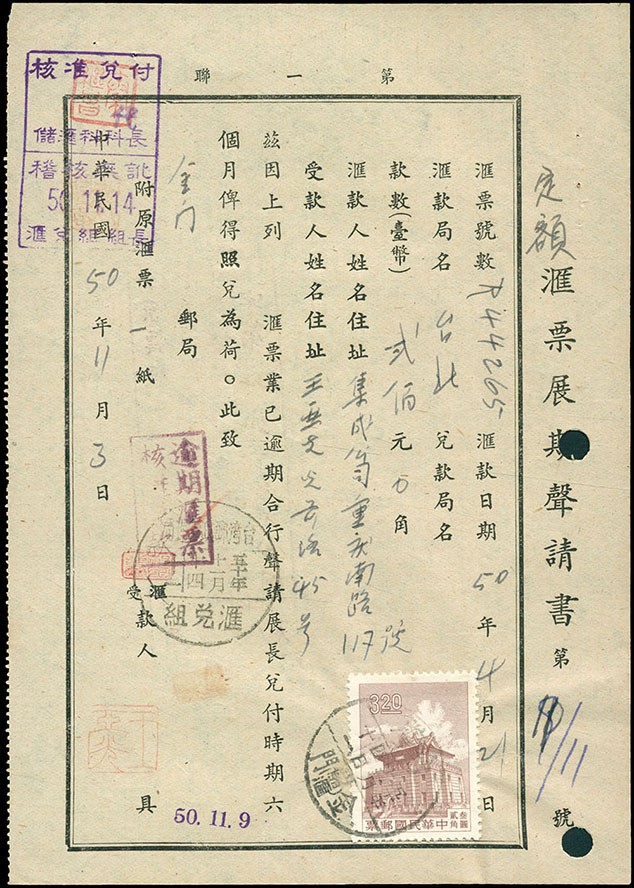 第一聯
定額匯票展期聲請書 第 11 號
匯票號數 44265 匯款日期 50 年 4 月 21 日
匯款局名 台北 兌款局名
款數(臺幣) 貳佰元0角
匯款人姓名住址 集成 重慶南路117號
受款人姓名住址 王 45号
茲因上列 匯票業已逾期合行聲請展長兌付時期六
個月俾得照兌為荷。此致
金门 郵局
附原匯票一紙
匯
受款人 具
中華民國 50 年 11 月 3 日
核准兌付
儲匯科科長
稽核
50.11.14
匯兌組組長
逾期匯票
核
匯兌組
50.11.9
3.20
叁圓
貳角
中華民國郵票
金門